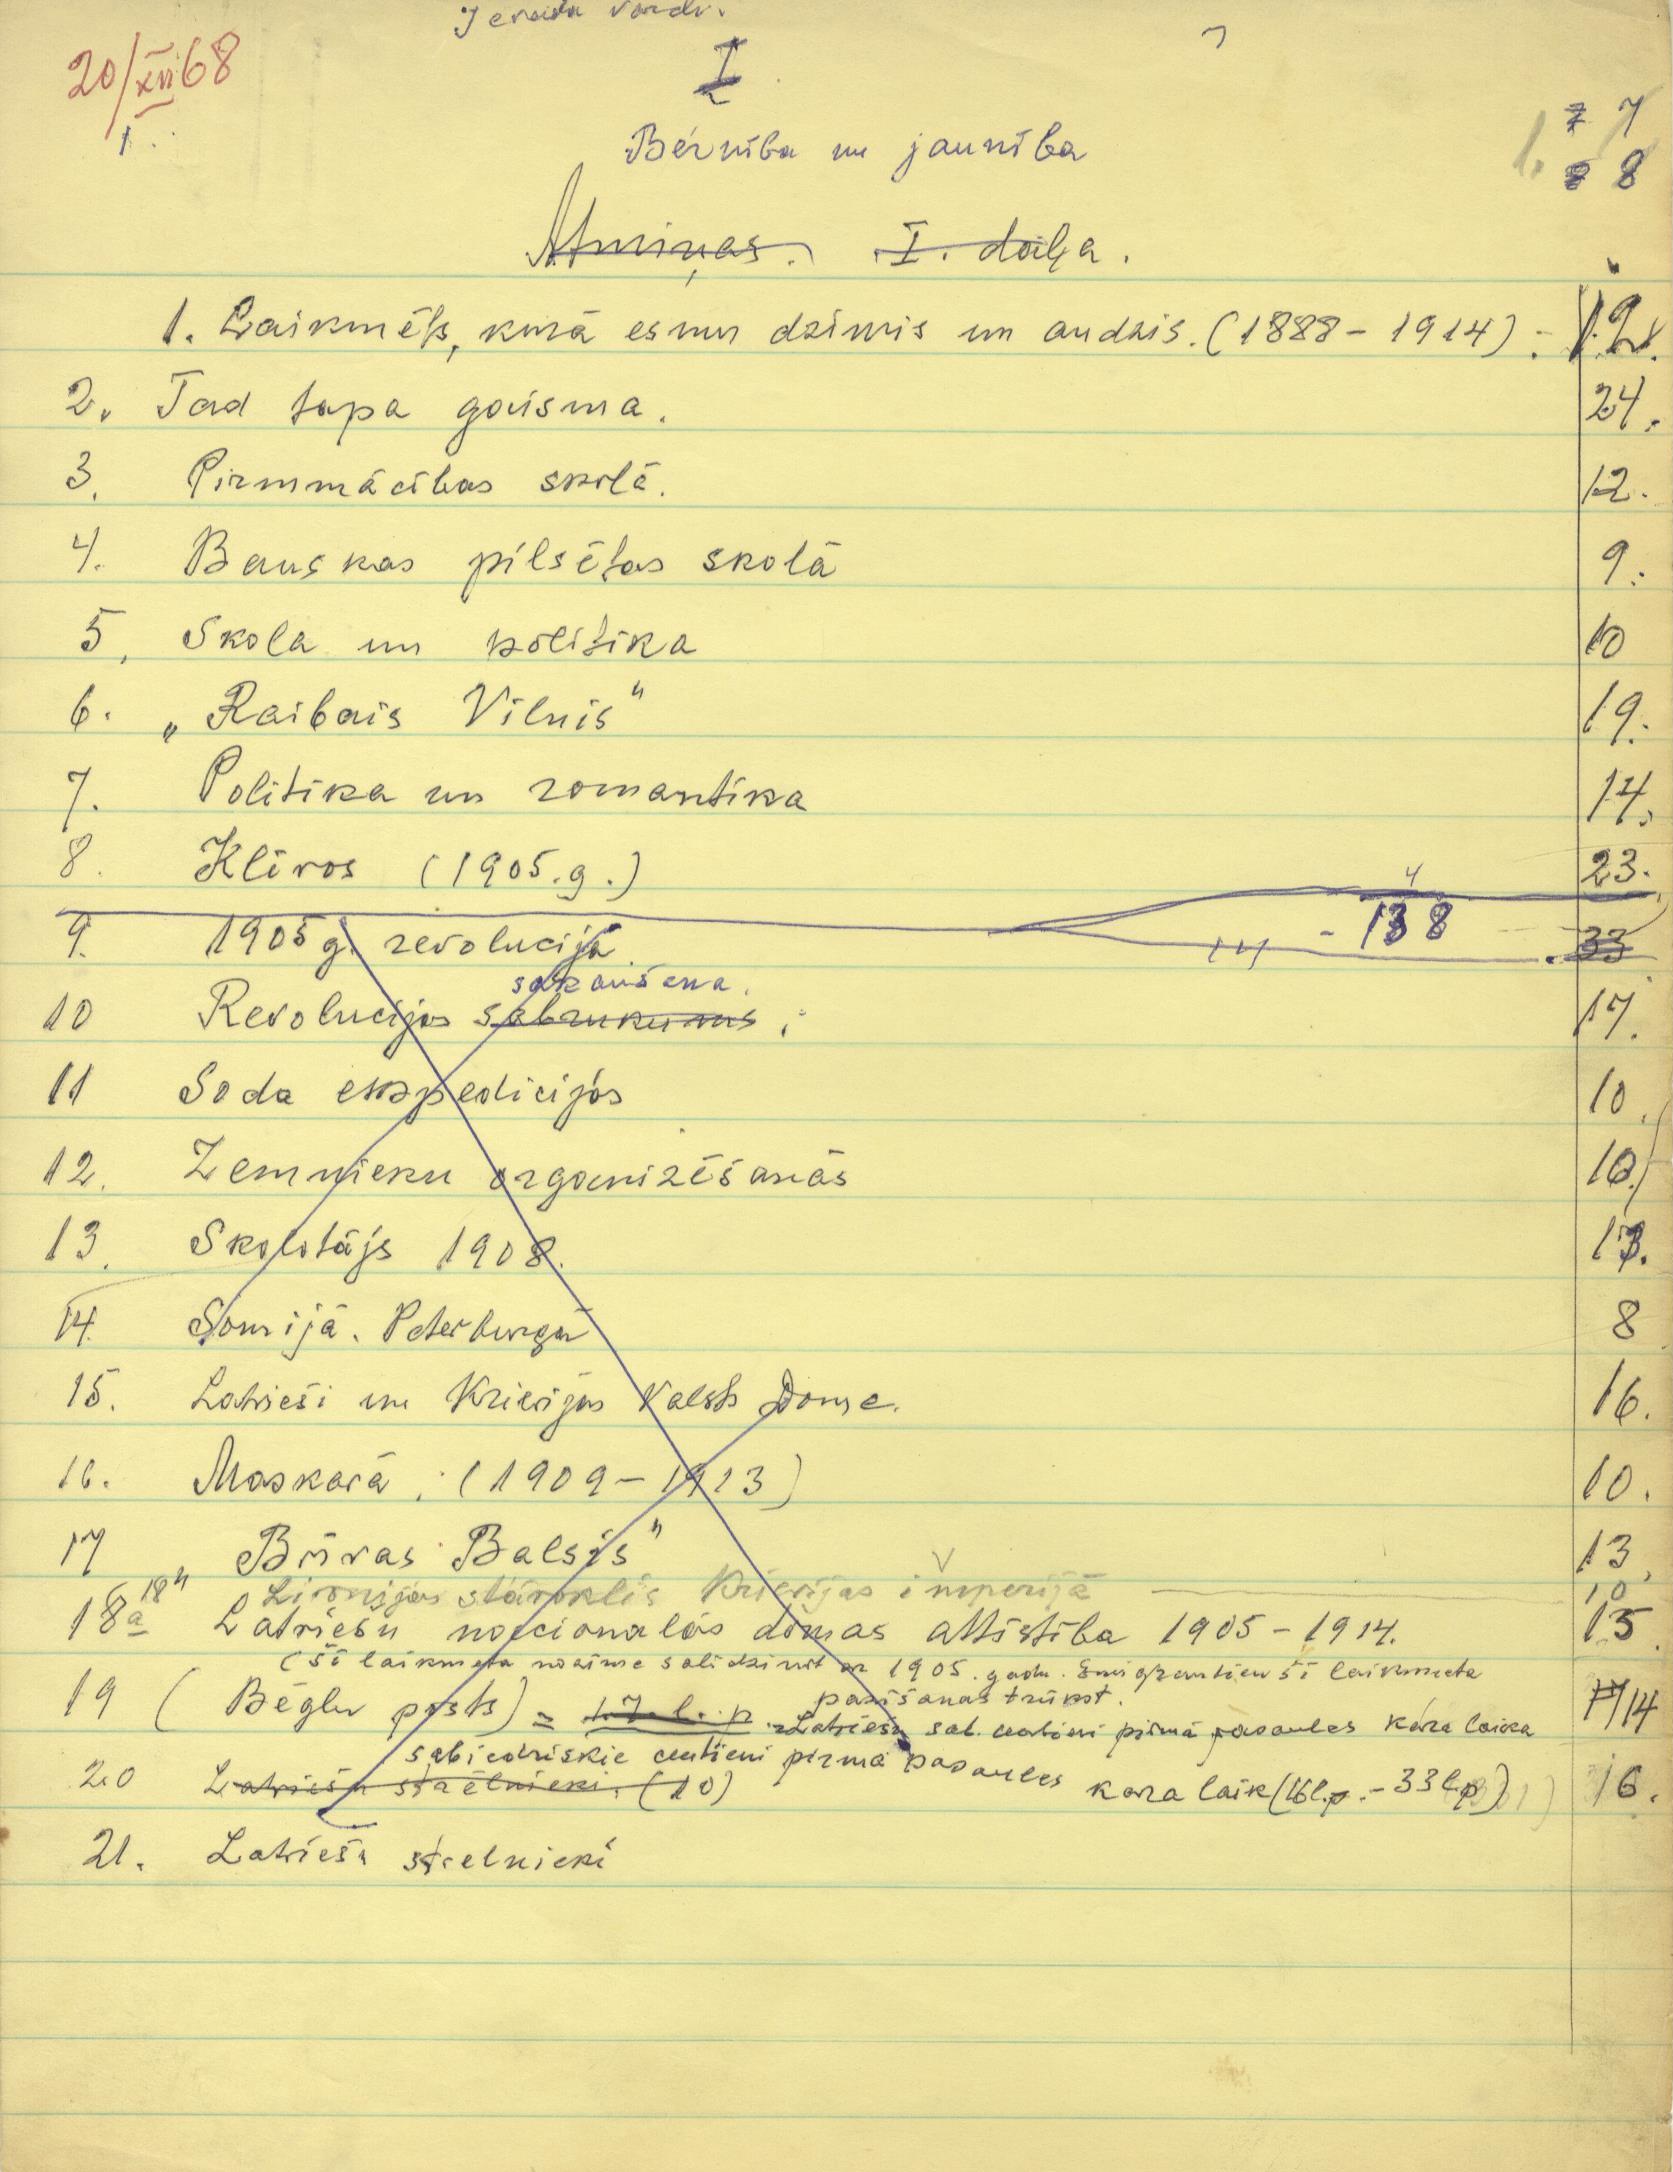 Ievada vārdi.
20/XII 68
I
1.
7 7
Bērnība un jaunība
1.
8 8
Atmiņas. I. daiļa.
1. Laikmēts, kurā esmu dzimis un audzis. (1888 - 1914) : 12.
2. Tad tapa gaisma. 24.
3. Pirmmācības skolā. 12.
4. Bauskas pilsētas skolā 9.
5. Skola un politika 10
6. „Raibais Vilnis" 19.
7. Politika un romantika 14.
8. Klīvos (1905.g.) 23.
4
9. 1905 g. revolucija 14 - 138 33
sakaušana.
10 Revolucijas sabrukums. 17.
11 Soda ekspedicijas 10.
12. Zemnieku organizēšanās 10.
13. Skolotājs 1908. 13.
14. Somijā. Peterburgā 8
15. Latvieši un Krievijas Valsts Dome. 16.
16. Maskavā. (1909 - 1913) 10.
17 „Brīvas Balsis" 13.
18 Livonijas stāvoklis Krievijas imperijā 10
18a Latviešu nacionalās domas attīstība 1905 - 1914. 15.
(šī laikmeta nozīme salīdzinot ar 1905. gadu. Emigrantiem šī laikmeta
pazīšanas trūkst.
19 (Bēgļu posts) = 17. l. p. Latviešu sab. centieni pirmā pasaules kara laikā 14
sabiedriskie centieni pirmā pasaules kara laik (16l.p. - 33 l.p)
20 Latviešu strēlnieki. (10) 16.
21. Latviešu strēlnieki